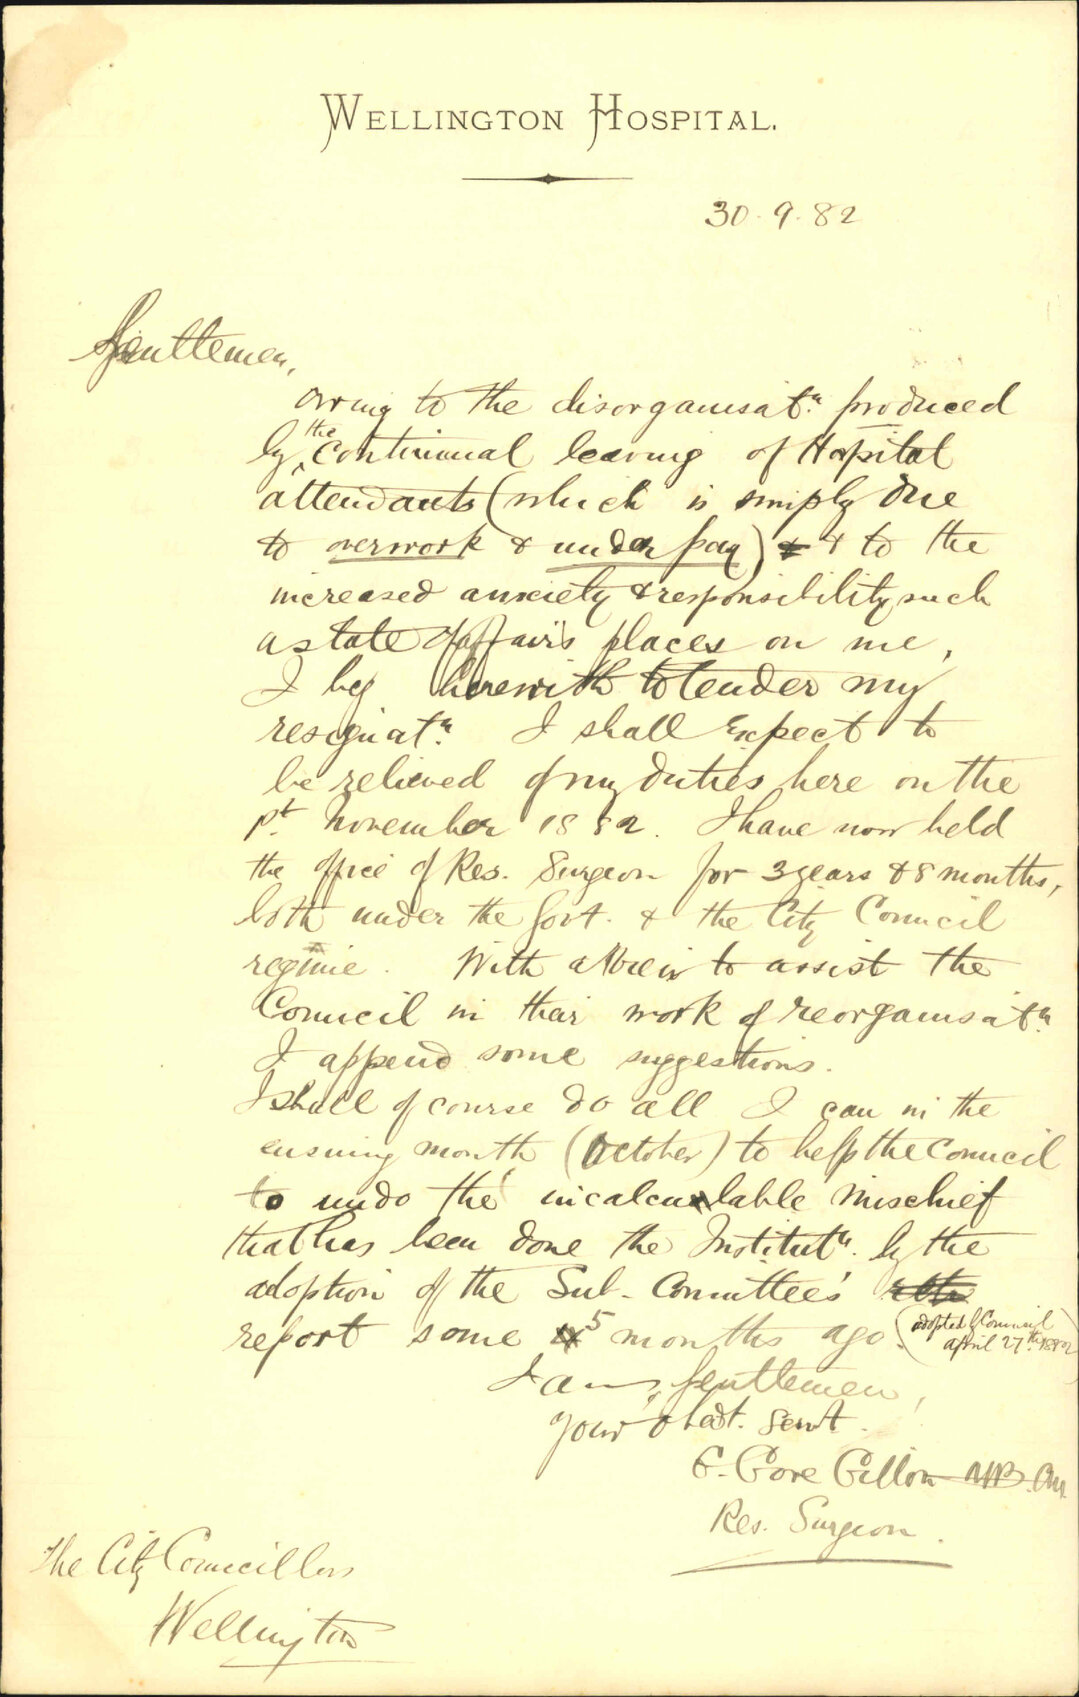 WELLINGTON HOSPITAL.
30.9.82
Gentlemen,
owing to the disorganisatn. produced
by the continual leaving of Hospital
attendants (which is simply due
to overwork & under pay) & to the
increased anxiety & responsibility such
a state of affairs places on me,
I beg herewith to tender my
resignatn. I shall expect to
be relieved of my duties here on the
1st. November 1882. I have now held
the office of Res. Surgeon for 3 years & 8 months,
both under the Govt. & the City Council
regime. With a view to assist the
Council in their work of reorganisatn.
I append some suggestions.
I shall of course do all I can in the
ensuing month (October) to help the Council
to undo the incalculable mischief
that has been done the Institutn. by the
adoption of the Sub-Committee's
report some 5 months ago. (adopted by Council
april 27th. 1882)
I am, Gentlemen,
Your obdt. servt.
G. Gore Gillon MB. CM
Res. Surgeon.
The City Councillors
Wellington